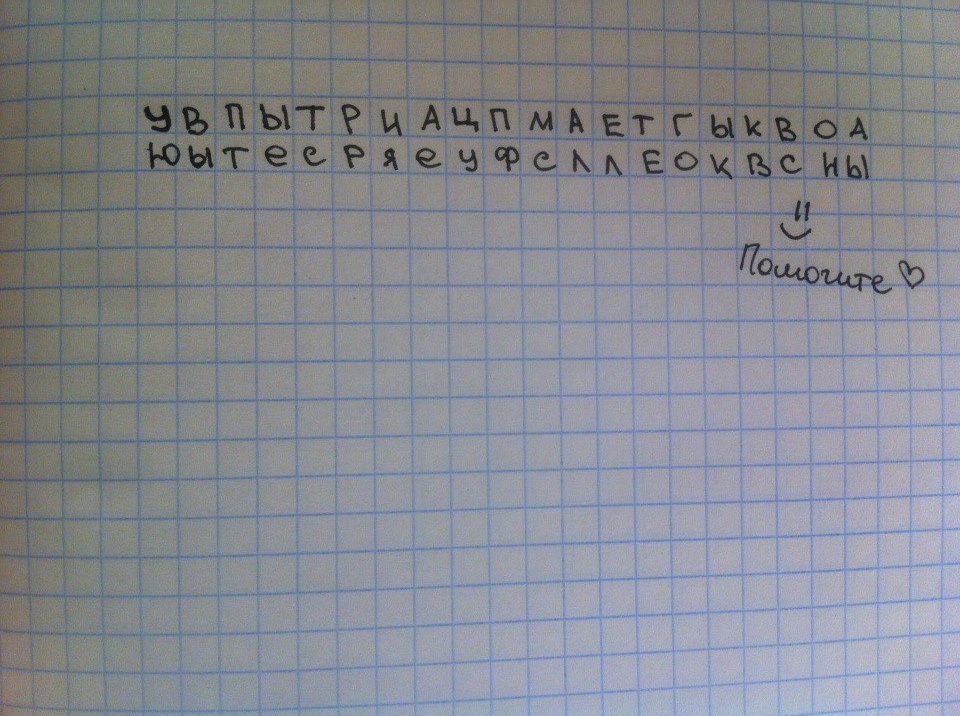 УВПЫТРИАЦПМАЕТГЫКВОА
ЮЫТЕСРЯЕУФСЛЛЕОКВСНЫ
Помогите ♡